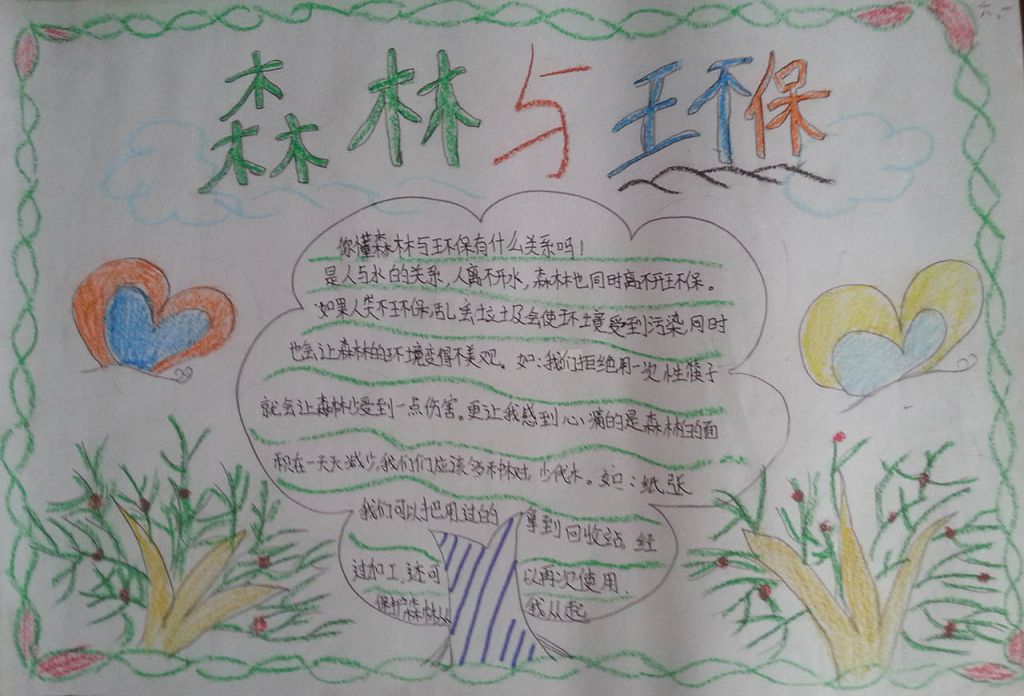 六.一
森林与环保
你懂森林与环保有什么关系吗！
是人与水的关系,人离不开水,森林也同时离不开环保。
如果人类不环保,乱丢垃圾会使环境受到污染,同时
也会让森林的环境变得不美观。如:我们拒绝用一次性筷子
就会让森林少受到一点伤害。更让我感到心痛的是森林的面
积在一天天减少,我们们应该多种树,少伐木。如:纸张
我们可以把用过的 拿到回收站,经
过加工,还可 以再次使用.
保护森林从 我从起